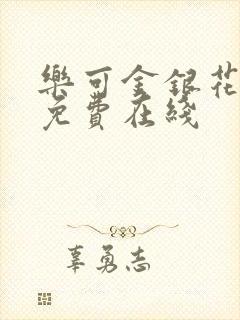 樂可金銀花
免費在綫
辜勇志